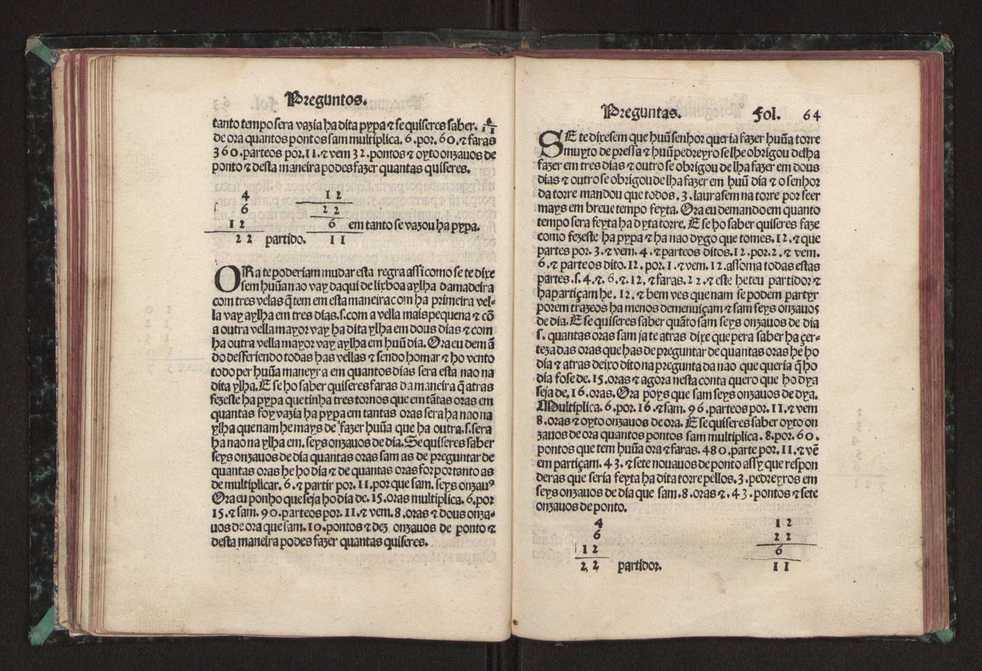 Preguntos.
tanto tempo sera vazia ha dita pypa ⁊ se quiseres saber. 6/11
de ora quantos pontos sam multiplica. 6. por. 60. ⁊ faras
360. parteos por. 11. ⁊ vem 32. pontos ⁊ oyto onzauos de
ponto ⁊ desta maneira podes fazer quantas quiseres.
4 12
6 22
12 6 em tanto se vazou ha pypa.
22 partido. 11
ORa te poderiam mudar esta regra assi como se te dixe
sem huũa nao vay daqui de lixboa aylha da madeira
com tres velas q̃ tem em esta maneira com ha primeira vel-
la vay aylha em tres dias. s. com a vella mais pequena ⁊ cõ
a outra vella mayor vay ha dita ylha em dous dias ⁊ com
ha outra vella mayor vay aylha em huũ dia. Ora eu dem ã
do desferiendo todas has vellas ⁊ sendo ho mar ⁊ ho vento
todo per huũa maneyra em quantos dias sera esta nao na
dita ylha. E se ho saber quiseres faras da maneira q̃ atras
fezeste ha pypa que tinha tres tornos que em tãtas oras em
quantas foy vazia ha pypa em tantas oras sera ha nao na
ylha que nam he mays de fazer huũa que ha outra. s. sera
ha nao na ylha em. seys onzauos de dia. Se quiseres saber
seys onzauos de dia quantas oras sam as de preguntar de
quantas oras he ho dia ⁊ de quantas oras for por tanto as
de multiplicar. 6. ⁊ partir por. 11. por que sam. seys onzauꝰ
Ora eu ponho que seja ho dia de. 15. oras multiplica. 6. por
15. ⁊ sam. 90. parteos por. 11. ⁊ vem. 8. oras ⁊ dous onza-
uos de ora que sam. 10. pontos ⁊ dez onzauos de ponto ⁊
desta maneira podes fazer quantas quiseres.
Preguntas. Fol. 64
SE te dixesem que huũ senhor queria fazer huũa torre
muyto de pressa ⁊ huũ pedreyro se lhe obrigou de lha
fazer em tres dias ⁊ outro se obrigou de lha fazer em dous
dias ⁊ outro se obrigou de lha fazer em huũ dia ⁊ o senhor
da torre mandou que todos. 3. laurasem na torre por seer
mays em breue tempo feyta. Ora eu demando em quanto
tempo sera feyta ha dyta torre. E se ho saber quiseres faze
como fezeste ha pypa ⁊ ha nao dygo que tomes. 12. ⁊ que
partes por. 3. ⁊ vem. 4. ⁊ parteos ditos. 12. por. 2. ⁊ vem.
6. ⁊ parteos dito. 12. por. 1. ⁊ vem. 12. assoma todas estas
partes. s. 4. ⁊. 6. ⁊. 12. ⁊ faras. 22. ⁊ este he teu partidor ⁊
ha partiçam he. 12. ⁊ bem ves que nam se podem partyr
porem trazeos ha menos denemuiçam ⁊ sam seys onzauos
de dia. E se quiseres saber quãto sam seys onzauos de dia
s. quantas oras sam ja te atras dixe que pera saber ha çer-
teza das oras que has de preguntar de quantas oras he ho
dia ⁊ atras deixo dito na pregunta da nao que queria q̃ ho
dia fose de. 15. oras ⁊ agora nesta conta quero que ho dya
seja de. 16. oras. Ora poys que sam seys onzauos de dya.
Multiplica. 6. por. 16 ⁊ sam. 96. parteos por. 11. ⁊ vem
8. oras ⁊ oyto onzauos de ora. E se quiseres saber oyto on
zauos de ora quantos pontos sam multiplica. 8. por. 60.
pontos que tem huũa ora ⁊ faras. 480. parte por. 11. ⁊ vẽ
em partiçam. 43. ⁊ sete nouauos de ponto assy que respon
deras que seria feyta ha dita torre pellos. 3. pedreyros em
seys onzauos de dia que sam. 8. oras ⁊. 43. pontos ⁊ sete
onzauos de ponto.
4 12
6 22
12 6
22 partidor. 11